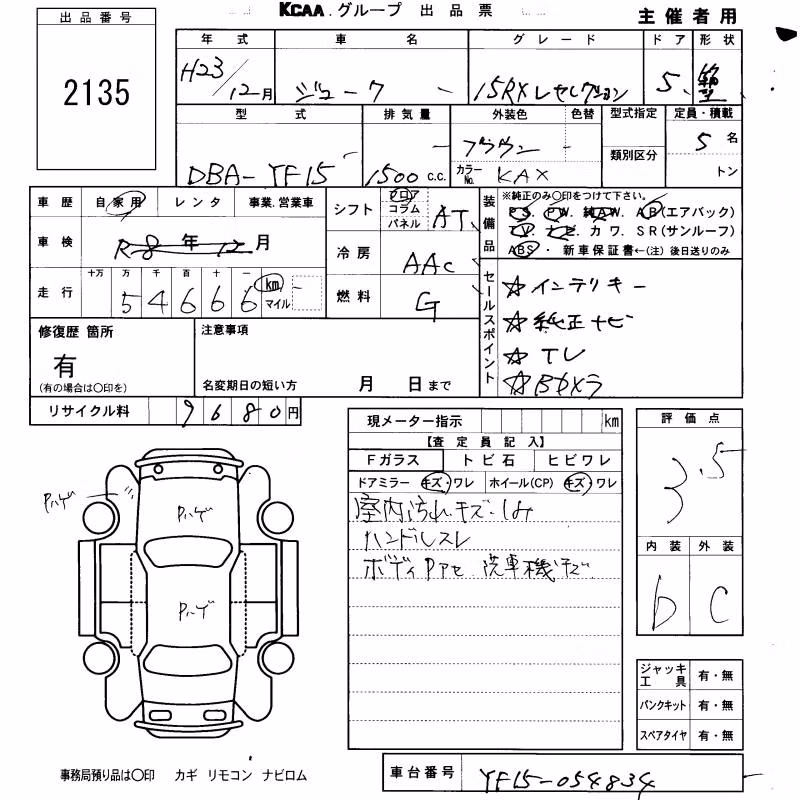 出品番号
KCAA.グループ 出品票
主催者用
2135
年式 車名 グレード ドア 形状
H23/12月 ジューク 15RXセレクション 5
型式 排気量 外装色 色替 型式指定 定員・積載
DBA-YF15 1500 c.c. ブラウン 類別区分 5名
カラーNo. KAX トン
車歴 自家用 レンタ 事業.営業車
車検 R8年12月
走行 十万 万 千 百 十 一
5 4 6 6 6 km マイル
シフト フロア コラム パネル AT
冷房 AAC
燃料 G
装備品
※純正のみ○印をつけて下さい。
P.S. P.W. 純A.W. A.B(エアバック)
T.V. ナビ. カワ. S R(サンルーフ)
ABS・新車保証書←(注)後日送りのみ
セールスポイント
☆インテリキー
☆純正ナビ
☆TV
☆Bカメラ
修復歴 箇所
有
(有の場合は○印を)
注意事項
名変期日の短い方 月 日まで
リサイクル料 9680円
現メーター指示 km
【査定員記入】
Fガラス トビ石 ヒビワレ
ドアミラー キズ.ワレ ホイール(CP) キズ.ワレ
室内汚れキズ.しみ
ハンドルスレ
ボディPアセ 洗車機キズ
評価点
3.5
内装 外装
b C
Pハゲ
Pハゲ
Pハゲ
ジャッキ工具 有・無
パンクキット 有・無
スペアタイヤ 有・無
事務局預り品は○印 カギ リモコン ナビロム
車台番号 YF15-054834